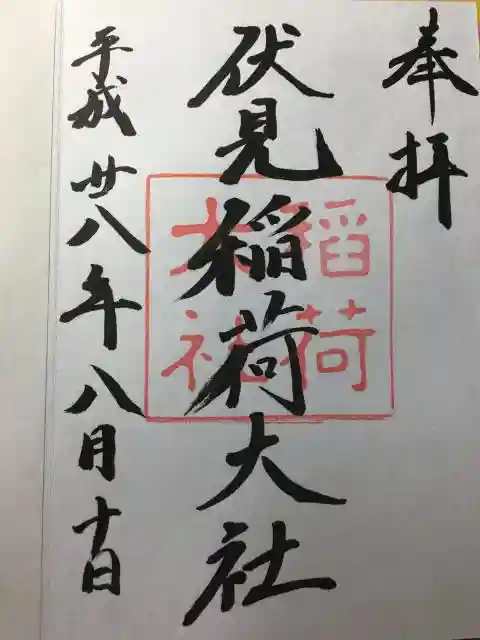 奉拝
伏見稲荷大社
平成廿八年八月十日
稲荷
大社